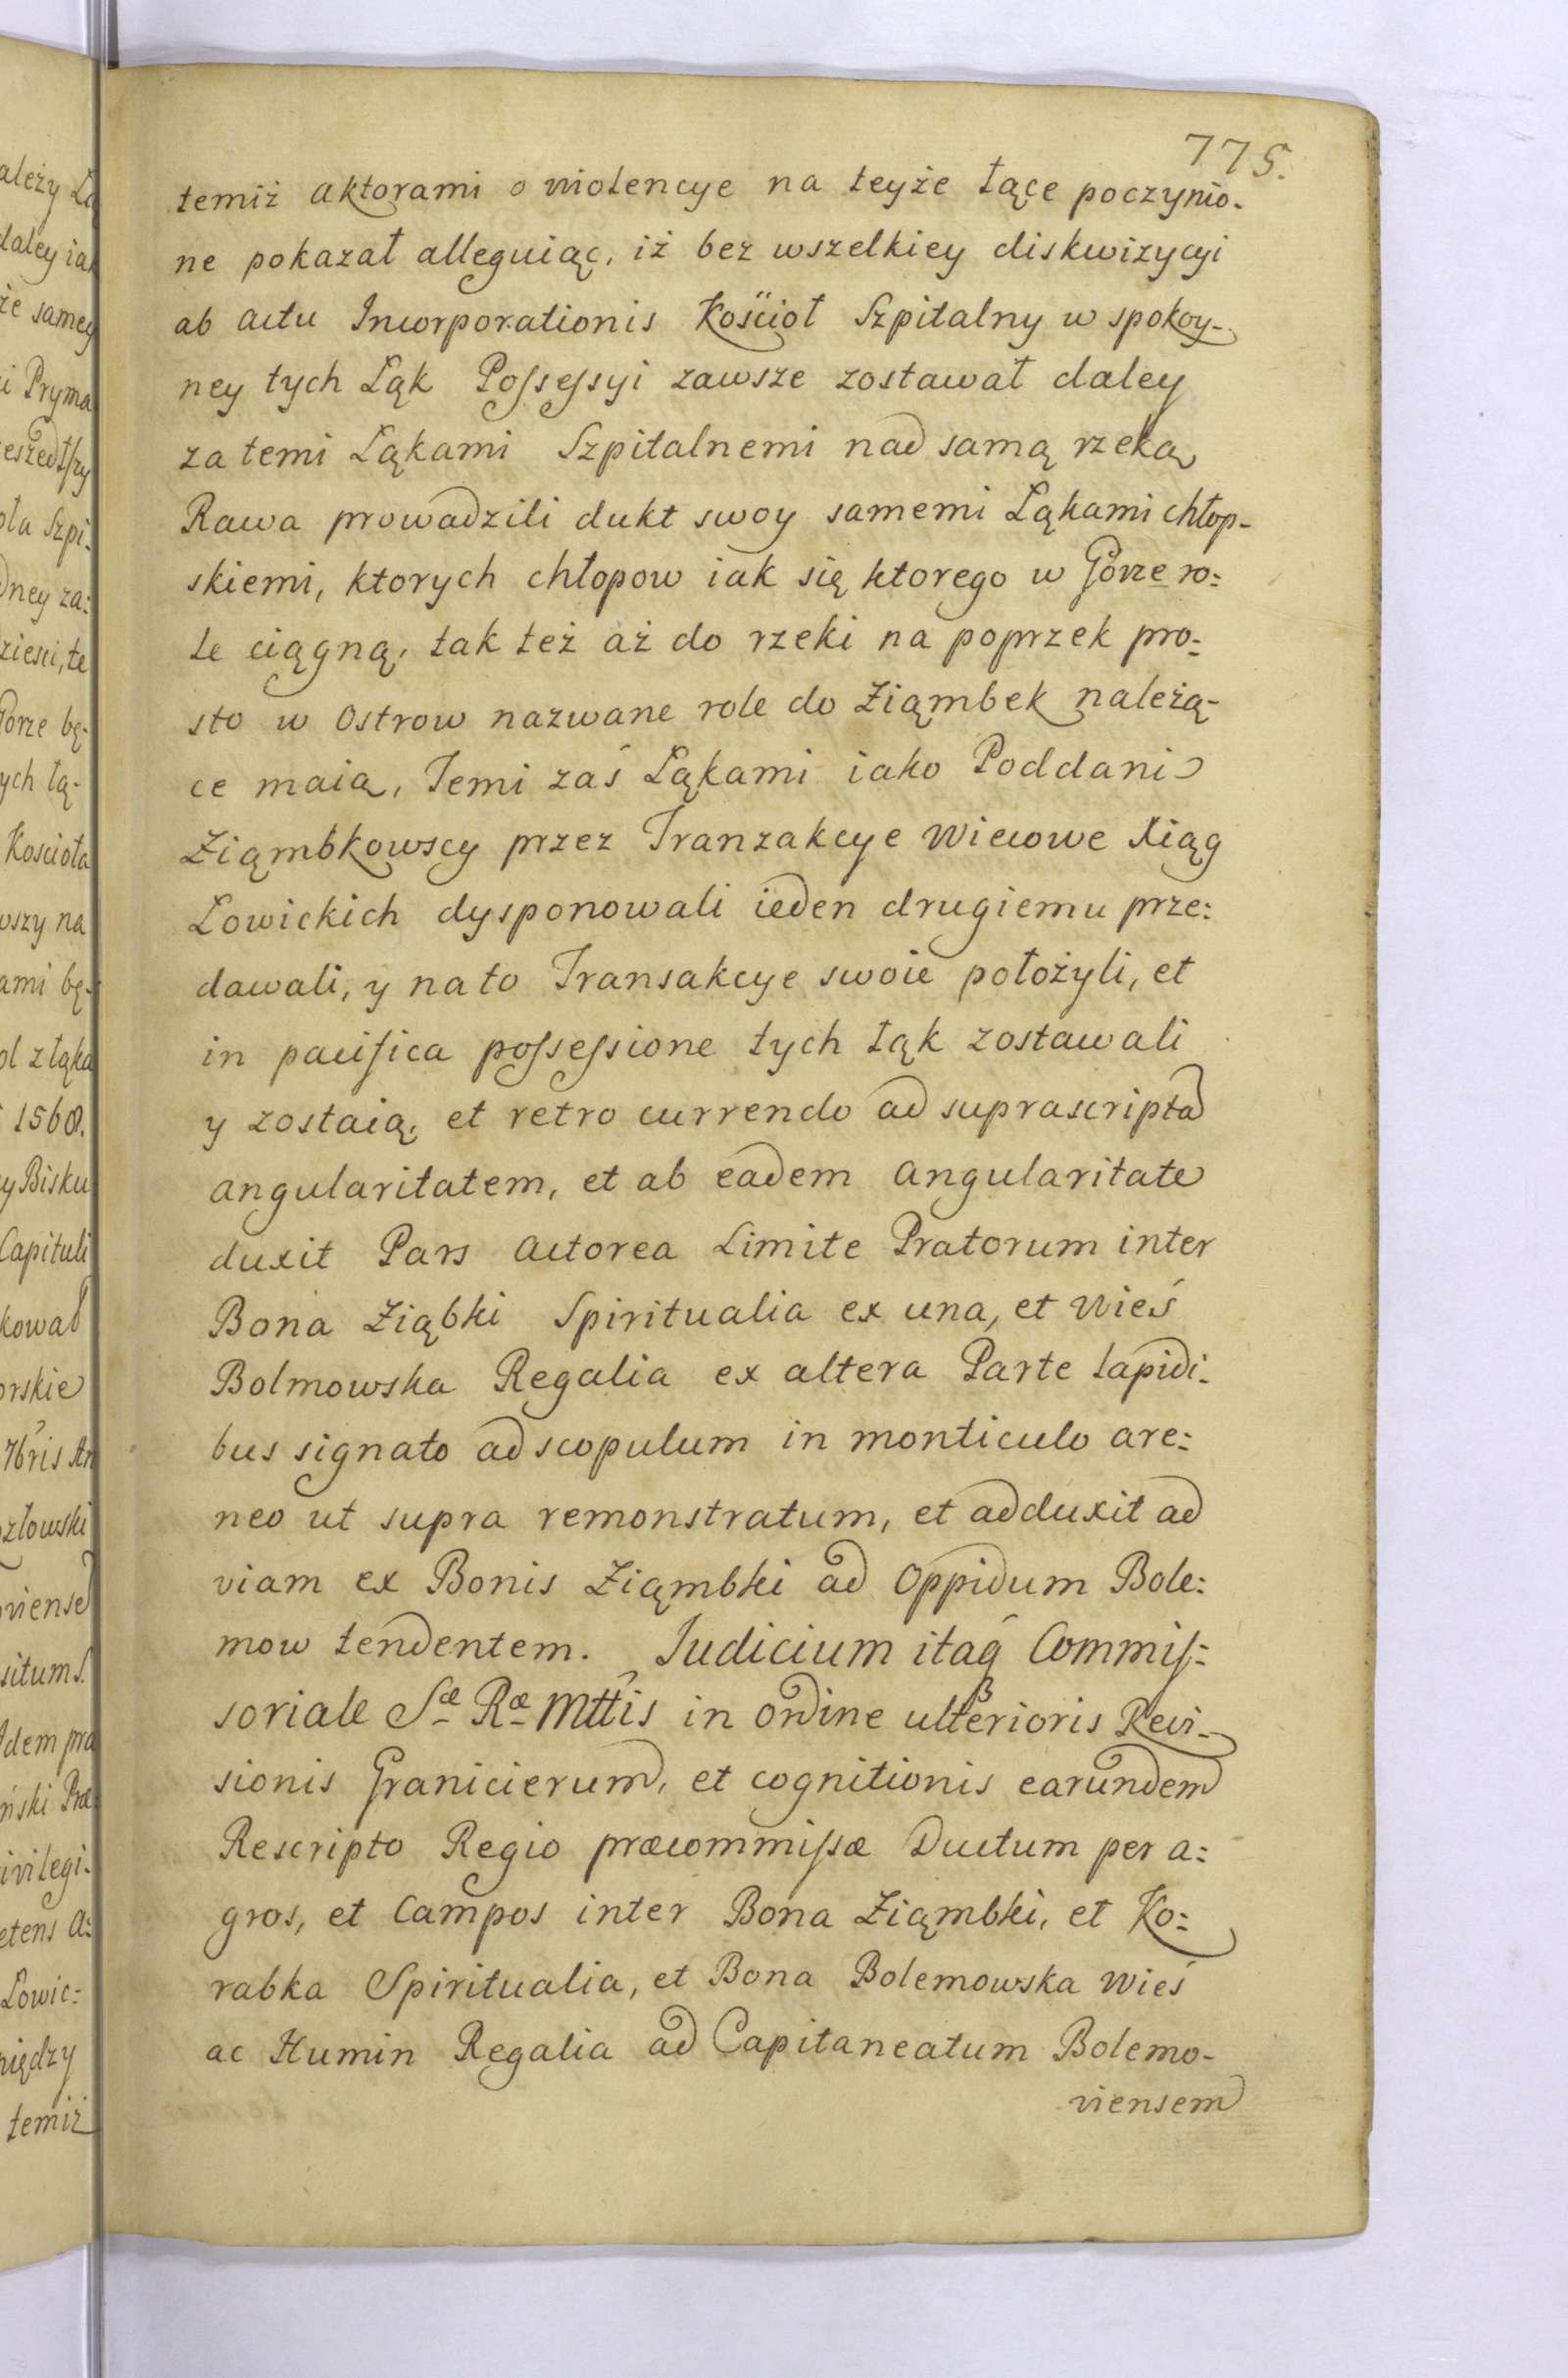 775.
temiż aktorami o violencye na teyże łące poczynio-
ne pokazał alleguiąc, iż bez wszelkiey diskwizycyi
ab actu Incorporationis Kościoł Szpitalny w spokoy-
ney tych Łąk Possessyi zawsze zostawał daley
za temi Łąkami Szpitalnemi nad samą rzeką
Rawa prowadzili dukt swoy samemi Łąkami chłop-
skiemi, ktorych chłopow iak się ktorego w Gorze ro:
le ciągną, tak też aż do rzeki na poprzek pro:
sto w Ostrow nazwane role do Ziąmbek należą-
ce maią, Temi zaś Łąkami iako Poddani
Ziąmbkowscy przez Tranzakcye Wiecowe Xiąg
Łowickich dysponowali ieden drugiemu prze:
dawali, y na to Transakcye swoie położyli, et
in pacifica possessione tych łąk zostawali
y zostaią, et retro currendo ad suprascripta
angularitatem, et ab eadem angularitate
duxit Pars actorea Limite Pratorum inter
Bona Ziąbki Spiritualia ex una, et Wieś
Bolmowska Regalia ex altera Parte lapidi:
bus signato ad scopulum in monticulo are:
neo ut supra remonstratum, et adduxit ad
viam ex Bonis Ziąmbki ad Oppidum Bole:
mow tendentem. Iudicium itaq́ Commis:
soriale Sæ Ræ Mttis in ordine ulterioris Revi-
sionis Granicierum, et cognitionis earundem
Rescripto Regio præcommissæ Ductum per a:
gros, et Campos inter Bona Ziąmbki, et Ko:
rabka Spiritualia, et Bona Bolemowska Wieś
ac Humin Regalia ad Capitaneatum Bolemo-
viensem
ależy Łą
daley iak
że samey
i Pryma
eszedłszy
oła Szpi:
dney za:
Gorze bę-
ych łą-
Kościoła
wszy na
ami bę-
1568.
y Bisku
Capituli
kował
orskie
7bris An
ozłowski
viense
situm S.
Idem pra
iński Præ
ivilegi:
etens A:
Łowic:
między
temiż